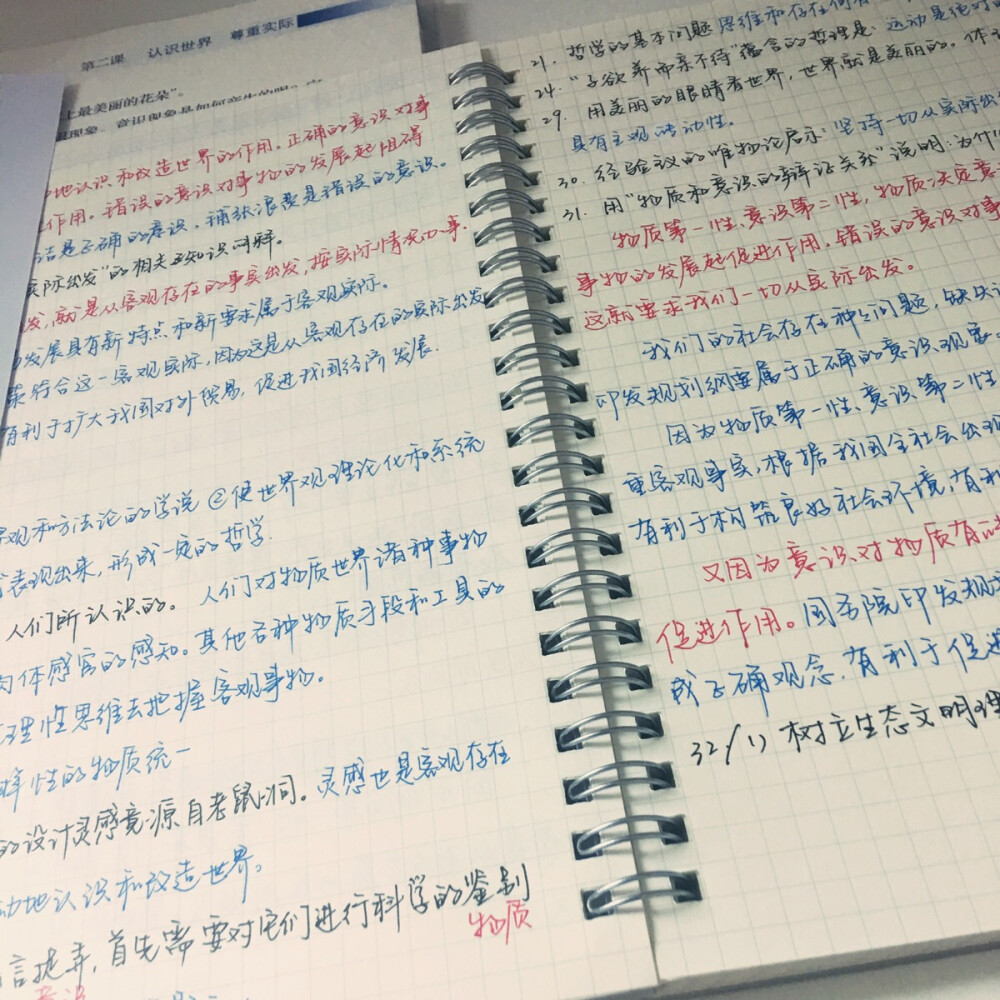 第二课 认识世界 尊重实际
上最美丽的花朵”。
现象。意识现象是如何产生的呢?
地认识和改造世界的作用。正确的意识对事
作用。错误的意识对事物的发展起阻碍
洁是正确的意识。铺张浪费是错误的意识。
实际出发”的相关知识阐释。
发,就是从客观存在的事实出发,按实际情况办事.
发展具有新特点和新要求属于客观实际.
策符合这一客观实际,因为这是从客观存在的实际出发
有利于扩大于我国对外贸易,促进我国经济发展.
观和方法论的学说 ②使世界观理论化和系统
表现出来,形成一定的哲学.
人们所认识的。人们对物质世界诸种事物
肉体感官的感知。其他各种物质手段和工具的
理性思维去把握客观事物。
样性的物质统一
的设计灵感竟源自老鼠洞。灵感也是客观存在
动地认识和改造世界。
言捉弄,首先需要对它们进行科学的鉴别
物质
意识
21. 哲学的基本问题 思维和存在何者
24. “子欲养而亲不待”蕴含的哲理是:运动是绝对的
29. 用美丽的眼睛看世界,世界就是美丽的。体
具有主观能动性。
30. 经验谈的唯物论启示:坚持一切从实际出发
31. 用“物质和意识的辩证关系”说明:为什
物质第一性,意识第二性,物质决定意
事物的发展起促进作用,错误的意识对事
这就要求我们一切从实际出发。
我们的社会存在种种问题,缺失
印发规划纲要属于正确的意识,观念.
因为物质第一性、意识第二性
重客观事实,根据我国全社会出现
有利于构筑良好社会环境,有利
又因为意识对物质有
促进作用。国务院印发规
成正确观念,有利于促进
32/1) 树立生态文明理